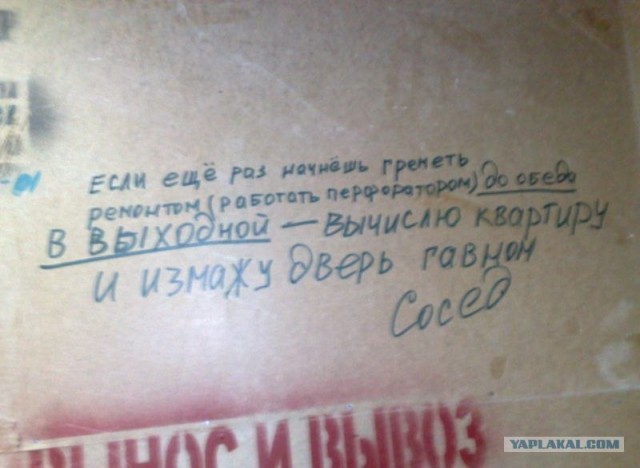 -01
Если ещё раз начнёшь греметь
ремонтом (работать перфоратором) до обеда
в выходной — вычислю квартиру
и измажу дверь гавном
Сосед
ВЫНОС И ВЫВОЗ
YAPLAKAL.COM